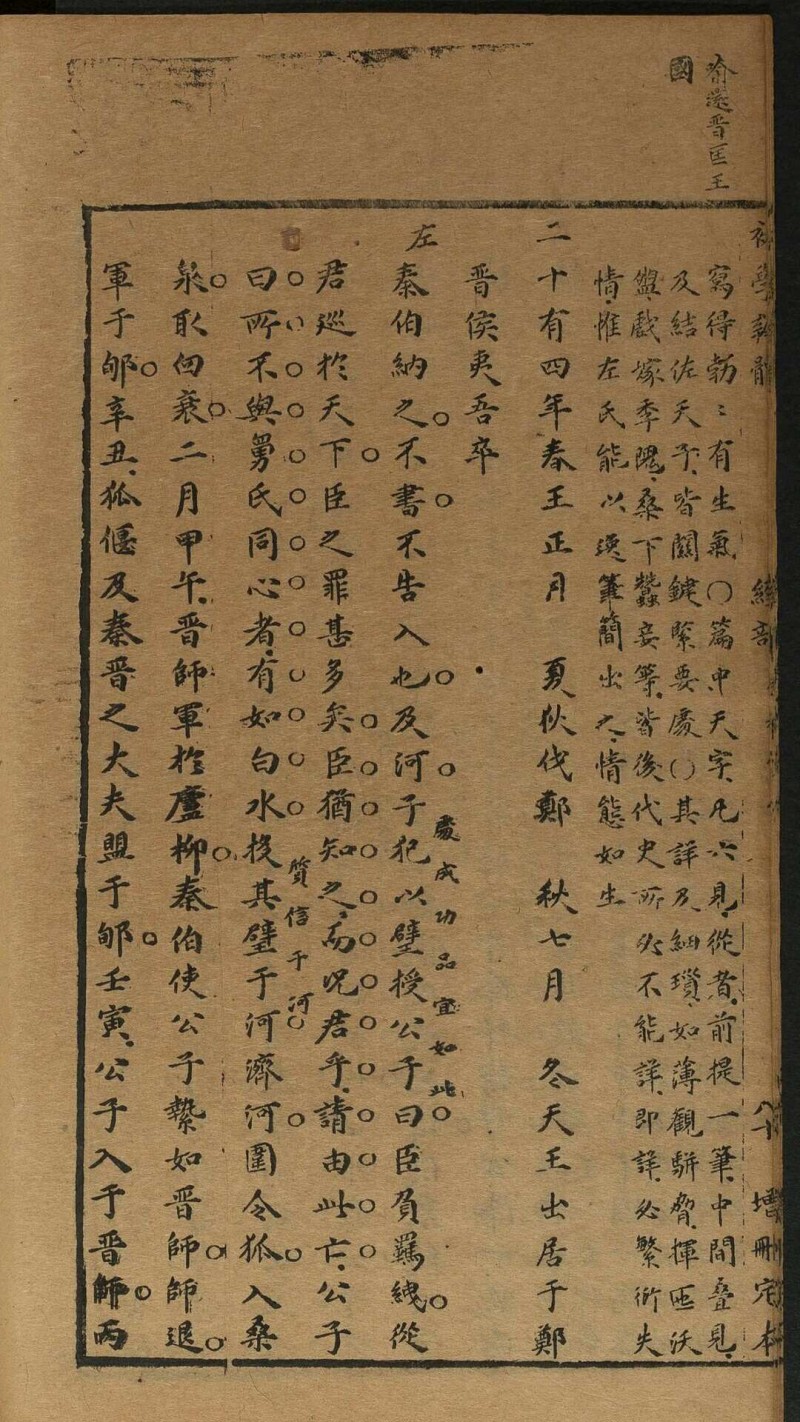 喻送晋匡王
國
寫得勃〻有生氣〇篇中天字凡六見從者前提一筆中間叠見
及結佐天子皆關鍵緊要處〇其詳及細瑣如薄觀駢脅揮匜沃
盥戲嫁季隗桑下蠶妾等皆後代史所必不能詳即詳必繁衍失
情惟左氏能以逸筆簡出之情態如生
二十有四年春王正月 夏狄伐鄭 秋七月 冬天王出居于鄭
晋侯夷吾卒
左秦伯納之不書不告入也及河子犯以璧授公子曰臣負羈絏從
處成功品宜如此
君巡於天下臣之罪甚多矣臣猶知之而况君乎請由此亡公子
曰所不與舅氏同心者有如白水投其璧于河濟河圍令狐入桑
質信于河
泉取臼衰二月甲午晋師軍於廬柳秦伯使公子縶如晋師師退
軍于郇辛丑狐偃及秦晋之大夫盟于郇壬寅公子入于晋師丙